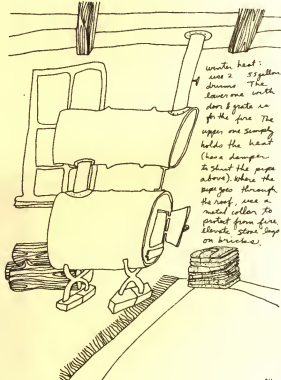 winter heat:
use 2 55 gallon
drums. The
lower one with
door & grate is
for the fire. The
upper one simply
holds the heat
(has a damper
to shut the pipe
above). where the
pipe goes through
the roof, use a
metal collar to
protect from fire.
elevate stove legs
on bricks.